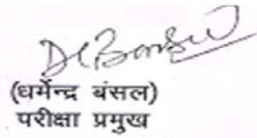 (धर्मेन्द्र बंसल)
परीक्षा प्रमुख